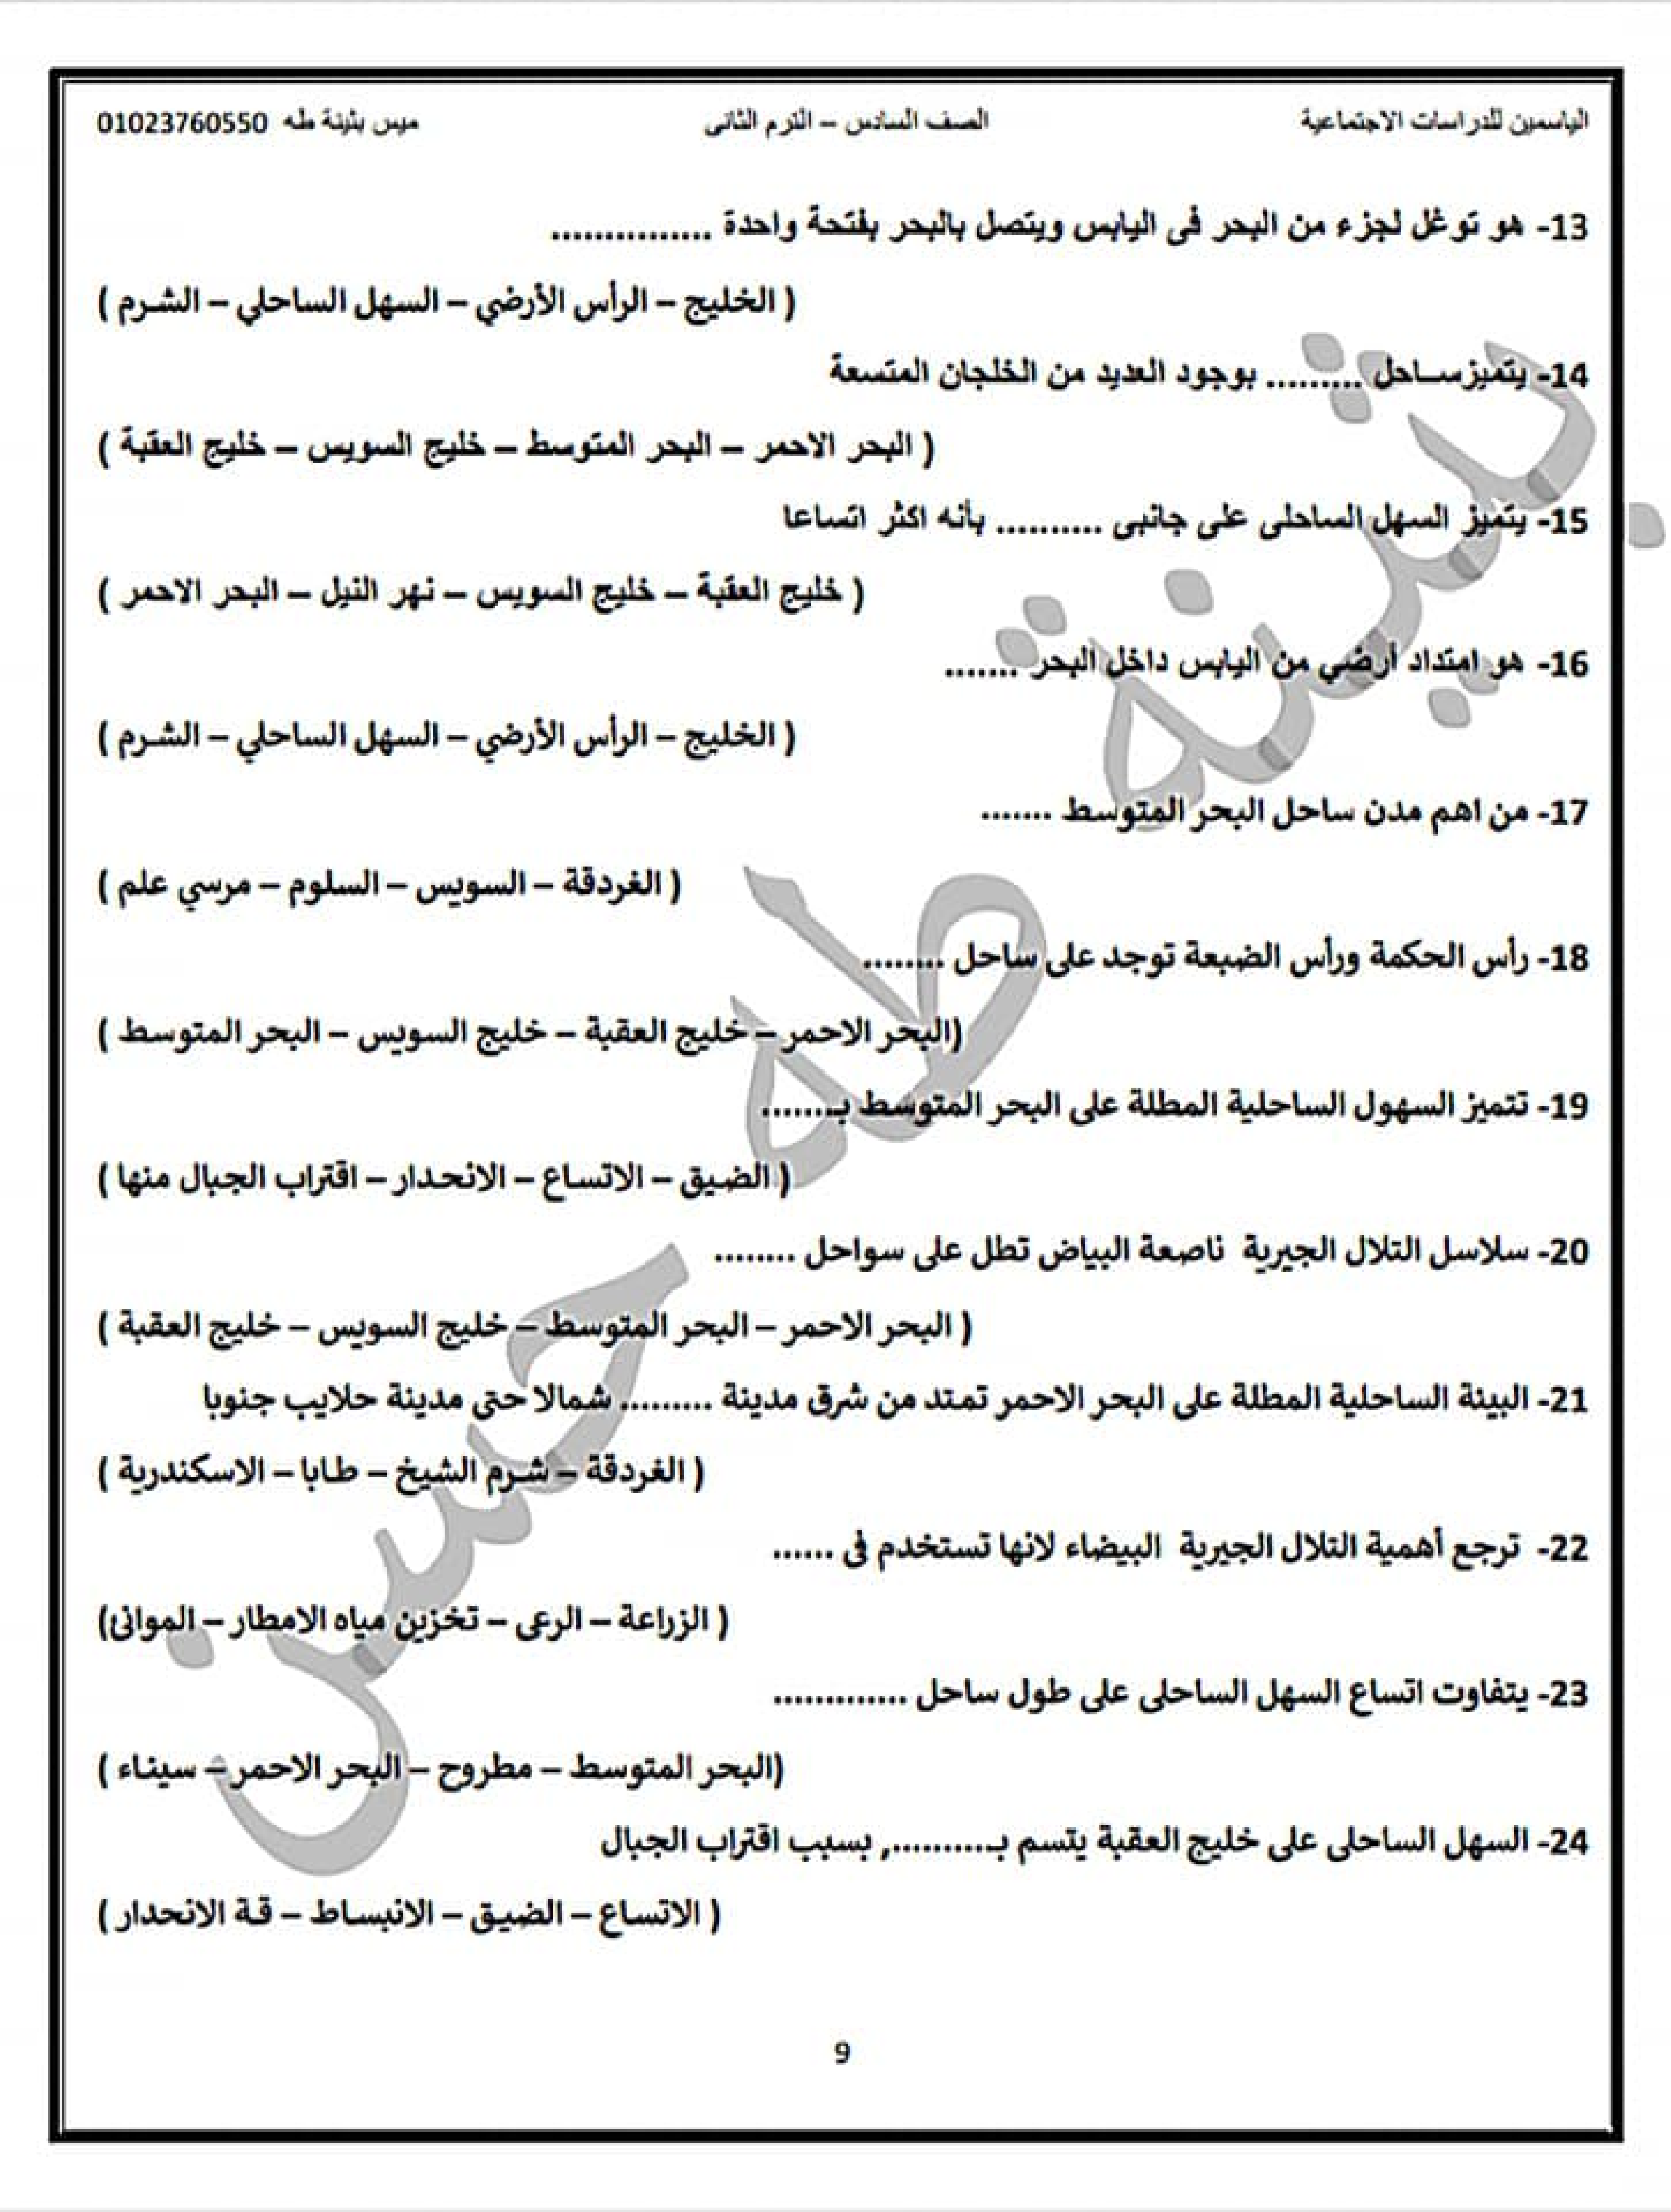 الياسمين للدراسات الاجتماعية الصف السادس – الترم الثانى ميس بثينة طه 01023760550
13- هو توغل لجزء من البحر فى اليابس ويتصل بالبحر بفتحة واحدة ...............
( الخليج – الرأس الأرضي – السهل الساحلي – الشرم )
14- يتميزساحل ......... بوجود العديد من الخلجان المتسعة
( البحر الاحمر – البحر المتوسط – خليج السويس – خليج العقبة )
15- يتميز السهل الساحلى على جانبى .......... بأنه اكثر اتساعا
( خليج العقبة – خليج السويس – نهر النيل – البحر الاحمر )
16- هو امتداد أرضي من اليابس داخل البحر .......
( الخليج – الرأس الأرضي – السهل الساحلي – الشرم )
17- من اهم مدن ساحل البحر المتوسط .......
( الغردقة – السويس – السلوم – مرسي علم )
18- رأس الحكمة ورأس الضبعة توجد على ساحل ........
(البحر الاحمر – خليج العقبة – خليج السويس – البحر المتوسط )
19- تتميز السهول الساحلية المطلة على البحر المتوسط بـ.......
( الضيق – الاتساع – الانحدار – اقتراب الجبال منها )
20- سلاسل التلال الجيرية ناصعة البياض تطل على سواحل ........
( البحر الاحمر – البحر المتوسط – خليج السويس – خليج العقبة )
21- البيئة الساحلية المطلة على البحر الاحمر تمتد من شرق مدينة ......... شمالا حتى مدينة حلايب جنوبا
( الغردقة – شرم الشيخ – طابا – الاسكندرية )
22- ترجع أهمية التلال الجيرية البيضاء لانها تستخدم فى ......
( الزراعة – الرعى – تخزين مياه الامطار – الموانئ)
23- يتفاوت اتساع السهل الساحلى على طول ساحل .............
(البحر المتوسط – مطروح – البحر الاحمر – سيناء )
24- السهل الساحلى على خليج العقبة يتسم بـ.........., بسبب اقتراب الجبال
( الاتساع – الضيق – الانبساط – قة الانحدار )
9
بثينة طه حسن